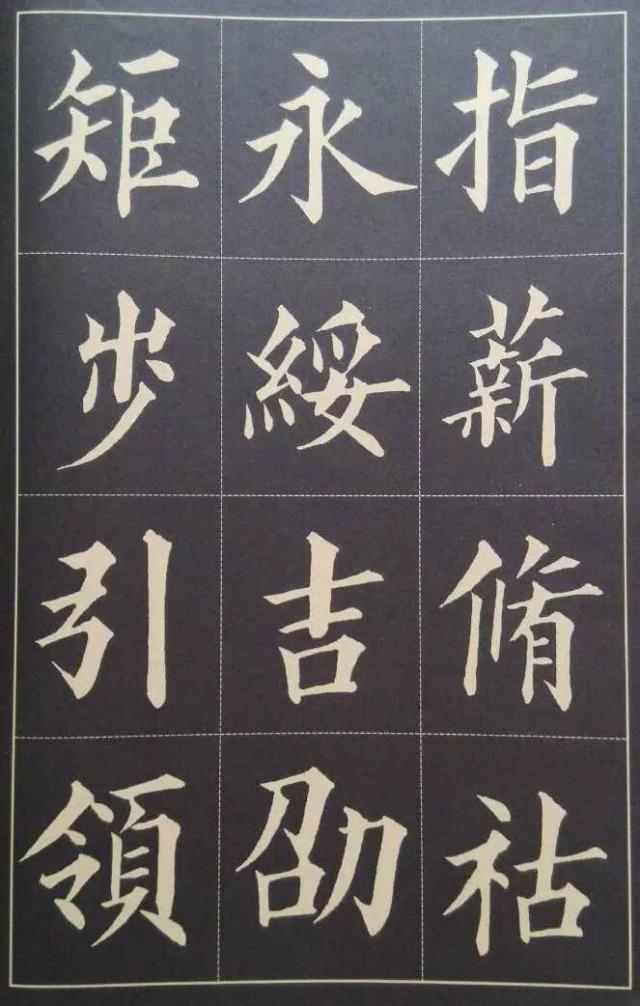 指薪脩祜
永綏吉劭
矩步引領